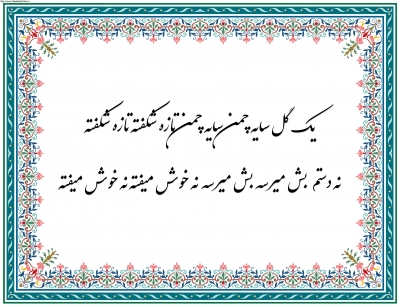 یک گل سایه چمن سایه چمن تازه شکفته تازه شکفته
نه دستم بش میرسه بش میرسه نه خوش میفته نه خوش میفته